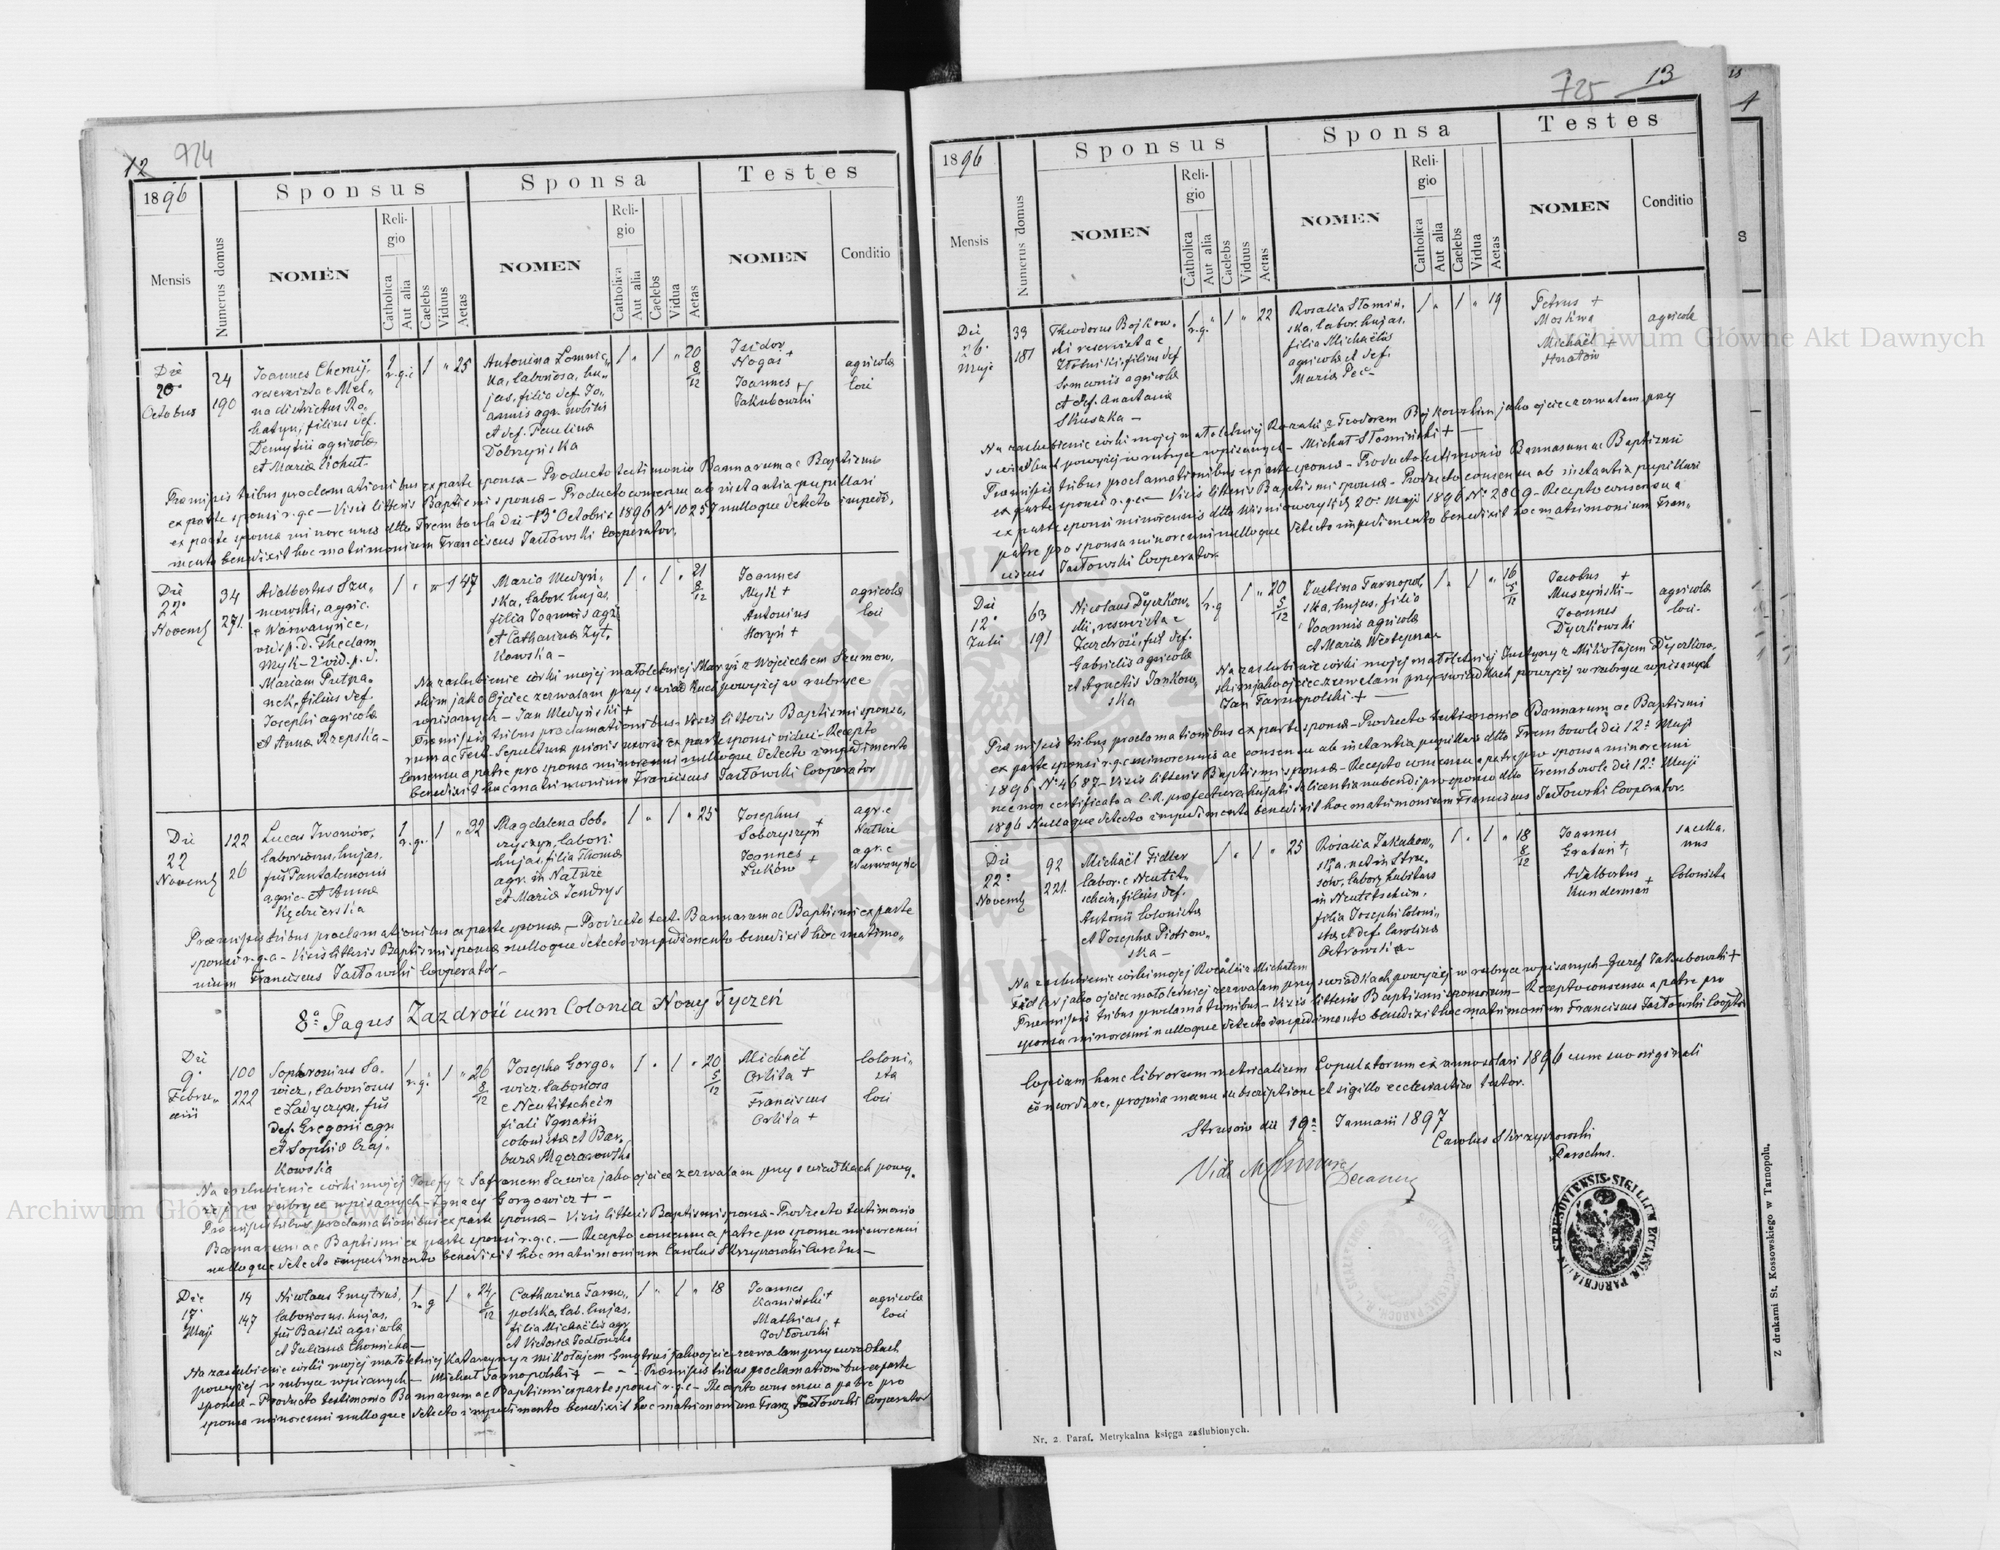 12 974
1896
Mensis
Numerus domus
Sponsus
NOMEN
Religio
Catholica
Aut alia
Caelebs
Viduus
Aetas
Sponsa
NOMEN
Religio
Catholica
Aut alia
Caelebs
Vidua
Aetas
Testes
NOMEN
Conditio
Die
20
Octobris
24
190
Joannes
reservista e Mel-
na districtus Ro-
hatyn, filius def.
agricolæ
et Mariæ
1
r.g.c
1 " 25
Antonina Lomnic-
ka, laboriosa, hu-
jas, filia def. Jo-
annis agr. nobilis
et def. Paulinæ
Dobrzyńska
1 " 1 " 20 8/12
Isidor
Nogaś +
Joannes +
Jakubowski
agricolæ
loci
Præmissis tribus proclamationibus ex parte sponsæ - Producto testimonio Bannorum ac Baptismi
ex parte sponsi r.g.c - Visis litteris Baptismi sponsæ - Producto consensu ab instantia pupillari
ex parte sponsæ minorennis dtto Trembowla die 13 Octobris 1896 Nº 10257 nulloque detecto impedi-
mento benedixit hoc matrimonium Franciscus Jastowski Cooperator.
Die
22º
Novemb
34
271.
Adalbertus Szu-
mowski, agric.
e Warwaryńce,
vid. p. d. Theclam
Myk - 2º vid. p. d.
Mariam Putpa-
nek, filius def.
Josephi agricolæ
et Annæ Rzepska -
1 " " 1 47
Maria Medyń-
ska, labor. hujas.
filia Joannis agr.
et Catharinæ Żyt-
kowska -
1 " 1 " 21 8/12
Joannes
Myk +
Antonius
Horyń +
agricolæ
loci
Na zaslubienie córki mojej małoletniej Maryi z Wojciechem Szumow-
skim jako Ojciec zezwalam przy świadkach powyżej w rubryce
wpisanych - Jan Medyński +
Præmissis tribus proclamationibus - Visis litteris Baptismi sponso-
rum ac Test. Sepulturæ prioris uxoris ex parte sponsi vidui - Recepto
Consensu a patre pro sponsa minorenni nulloque detecto impedimento
benedixit hoc matrimonium Franciscus Jastowski Cooperator
Die
22
Novemb
122
26
Lucas Iwanów,
laboriosus, hujas.
fil. Pantalemonis
agric. et Annæ
Kędzierska
1
r.g.
1 " 32
Magdalena Sob-
czyszyn, labori.
hujas, filia Thomæ
agr. in Nałuże
et Mariæ Jendrys
1 " 1 " 25
Josephus +
Soboryszyn
Joannes +
Łuków
agr. e
Nałuże
agr. e
Warwaryńce
Præmissis tribus proclamationibus ex parte sponsæ - Producto test. Bannorum ac Baptismi ex parte
sponsi r.g.c - Visis litteris Baptismi sponsæ nulloque detecto impedimento benedixit hoc matrimo-
nium Franciscus Jastowski Cooperator -
8ª Pagus Zazdrość cum Colonia Nowy Tyczeń
Die
9º
Febru-
arii
100
222
Sophronius Sa-
wicz, laboriosus
e Ladyczyn, fil.
def. Gregorii agr.
et Sophiæ Czaj-
kowska
1
r.g.
1 " 26 8/12
Josepha Gorgo-
wicz, laboriosa
e Neutitschein
filia Ignatii
colonistæ et Bar-
baræ
1 " 1 " 20 5/12
Michaël
Orlita +
Franciscus
Orlita +
Coloni-
sta
loci
Na zaslubienie córki mojej Józefy z Safronem Sawicz jako ojciec zezwalam przy swiadkach powy-
żej w rubryce wpisanych - Ignacy Gorgowicz + -
Præmissis tribus proclamationibus ex parte sponsæ - Visis litteris Baptismi sponsæ - Producto testimonio
Bannorum ac Baptismi ex parte sponsi r.g.c. - Recepto consensu a patre pro sponsa minorenni
nulloque detecto impedimento benedixit hoc matrimonium Carolus Skrzyszowski Curatus -
Die
17
Maji
14
147
Nicolaus Gmytruś,
laboriosus, hujas,
fil. Basilii agricolæ
et Julianæ
1
r.g
1 " 24 6/12
Catharina Tarno-
polska, lab. hujas.
filia Michaëlis agr.
et Victoriæ Jodłowska
1 " 1 " 18
Joannes
Kamiński +
Mathias
Jodłowski +
agricolæ
loci
Na zaslubienie córki mojej małoletniej Katarzyny z Mikołajem Gmytruś jako ojciec zezwalam przy swiadkach
powyżej w rubryce wpisanych - Michał Tarnopolski + - - Præmissis tribus proclamationibus ex parte
sponsæ - Producto testimonio Bannorum ac Baptismi ex parte sponsi r.g.c - Recepto consensu a patre pro
sponsa minorenni nulloque detecto impedimento benedixit hoc matrimonium Franc. Jastowski Cooperator
725 13
1896
Mensis
Numerus domus
Sponsus
NOMEN
Religio
Catholica
Aut alia
Caelebs
Viduus
Aetas
Sponsa
NOMEN
Religio
Catholica
Aut alia
Caelebs
Vidua
Aetas
Testes
NOMEN
Conditio
Die
26.
Maji
33
181
Theodorus Bojkow-
ski reservista e
Złotniki, filius def.
Simeonis agricolæ
et def. Anastasiæ
Skuszka -
1
r.g.
" 1 " 22
Rosalia Słomiń-
ska, labor. hujas.
filia Michaëlis
agricolæ et def.
Mariæ Peć -
1 " 1 " 19
Petrus +
Moskwa
Michaël +
Hnatów
agricolæ
Na zaslubienie córki mojej małoletniej Rozalii z Teodorem Bojkowskim jako ojciec zezwalam przy
swiadkach powyżej w rubryce wpisanych - Michał Słomiński + -
Præmissis tribus proclamationibus ex parte sponsæ - Producto testimonio Bannorum ac Baptismi
ex parte sponsi r.g.c. - Visis litteris Baptismi sponsæ - Producto consensu ab instantia pupillari
ex parte sponsi minorennis dtto Wiśniowczyk die 20 Maji 1896 Nº 2809 - Recepto consensu a
patre pro sponsa minorenni nulloque detecto impedimento benedixit hoc matrimonium Fran-
ciscus Jastowski Cooperator.
Die
12º
Julii
63
191
Nicolaus Dyczkow-
ski, reservista e
Zazdrość, fil. def.
Gabrielis agricolæ
et Agnetis Jankow-
ska
1
r.g
1 " 20 5/12
Justina Tarnopol-
ska, hujas, filia
Joannis agricolæ
et Mariæ
1 " 1 " 16 5/12
Jacobus +
Muszyński -
Joannes
Dyczkowski
agricolæ
loci.
Na zaslubienie córki mojej małoletniej Justyny z Mikołajem Dyczkow-
skim jako ojciec zezwalam przy swiadkach powyżej w rubryce wpisanych
Jan Tarnopolski + -
Præmissis tribus proclamationibus ex parte sponsæ - Producto testimonio Bannorum ac Baptismi
ex parte sponsi r.g.c. minorennis ac consensu ab instantia pupillari dtto Trembowla die 12º Maji
1896 Nº 4687 - Visis litteris Baptismi sponsæ - Recepto consensu a patre pro sponsa minorenni
nec non certificato a C.R. præfectura hujati de licentia nubendi pro sponso dtto Trembowla die 12º Maji
1896 Nulloque detecto impedimento benedixit hoc matrimonium Franciscus Jastowski Cooperator.
Die
22º
Novemb
92
221.
Michaël Fidler
labor. e Neutit-
schein, filius def.
Antonii Colonistæ
et Josephæ Piotrow-
ska -
1 " 1 " 25
Rosalia Jakubow-
ska, nat. in Stru-
sów, labor. habitans
in Neutitschein,
filia Josephi Coloni-
stæ et def. Carolinæ
Ostrowska -
1 " 1 " 18 8/12
Joannes
+
Adalbertus
Kunderman +
Colonista
Na zaslubienie córki mojej Rozalii z Michałem
Fidler jako ojciec małoletniej zezwalam przy swiadkach powyżej w rubryce wpisanych - Józef Jakubowski +
Præmissis tribus proclamationibus - Visis litteris Baptismi sponsorum - Recepto consensu a patre pro
sponsa minorenni nulloque detecto impedimento benedixit hoc matrimonium Franciscus Jastowski Coopter
Copiam hanc librorum metricalium Copulatorum ex anno solari 1896 cum suo originali
concordare, propria manu subscriptione et sigillo ecclesiastico testor.
Strusów die 19ª Januarii 1897
Carolus Skrzyszowski
Parochus.
Vidi
Decanus
Nr. 2. Paraf. Metrykalna księga zaślubionych.
Z drukarni St. Kossowskiego w Tarnopolu.
Archiwum Główne Akt Dawnych
Archiwum Główne Akt Dawnych